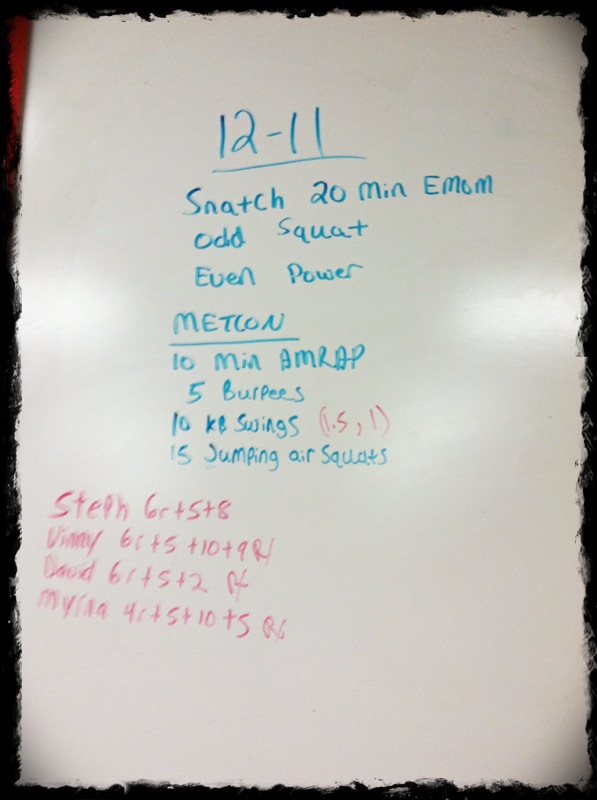 12-11
Snatch 20 Min EMOM
Odd Squat
Even Power
METCON
10 Min AMRAP
5 Burpees
10 KB Swings (1.5, 1)
15 Jumping air Squats
Steph 6r+5+8
Vinny 6r+5+10+9 Rx
David 6r+5+2 Rx
Myrna 4r+5+10+5 Rx